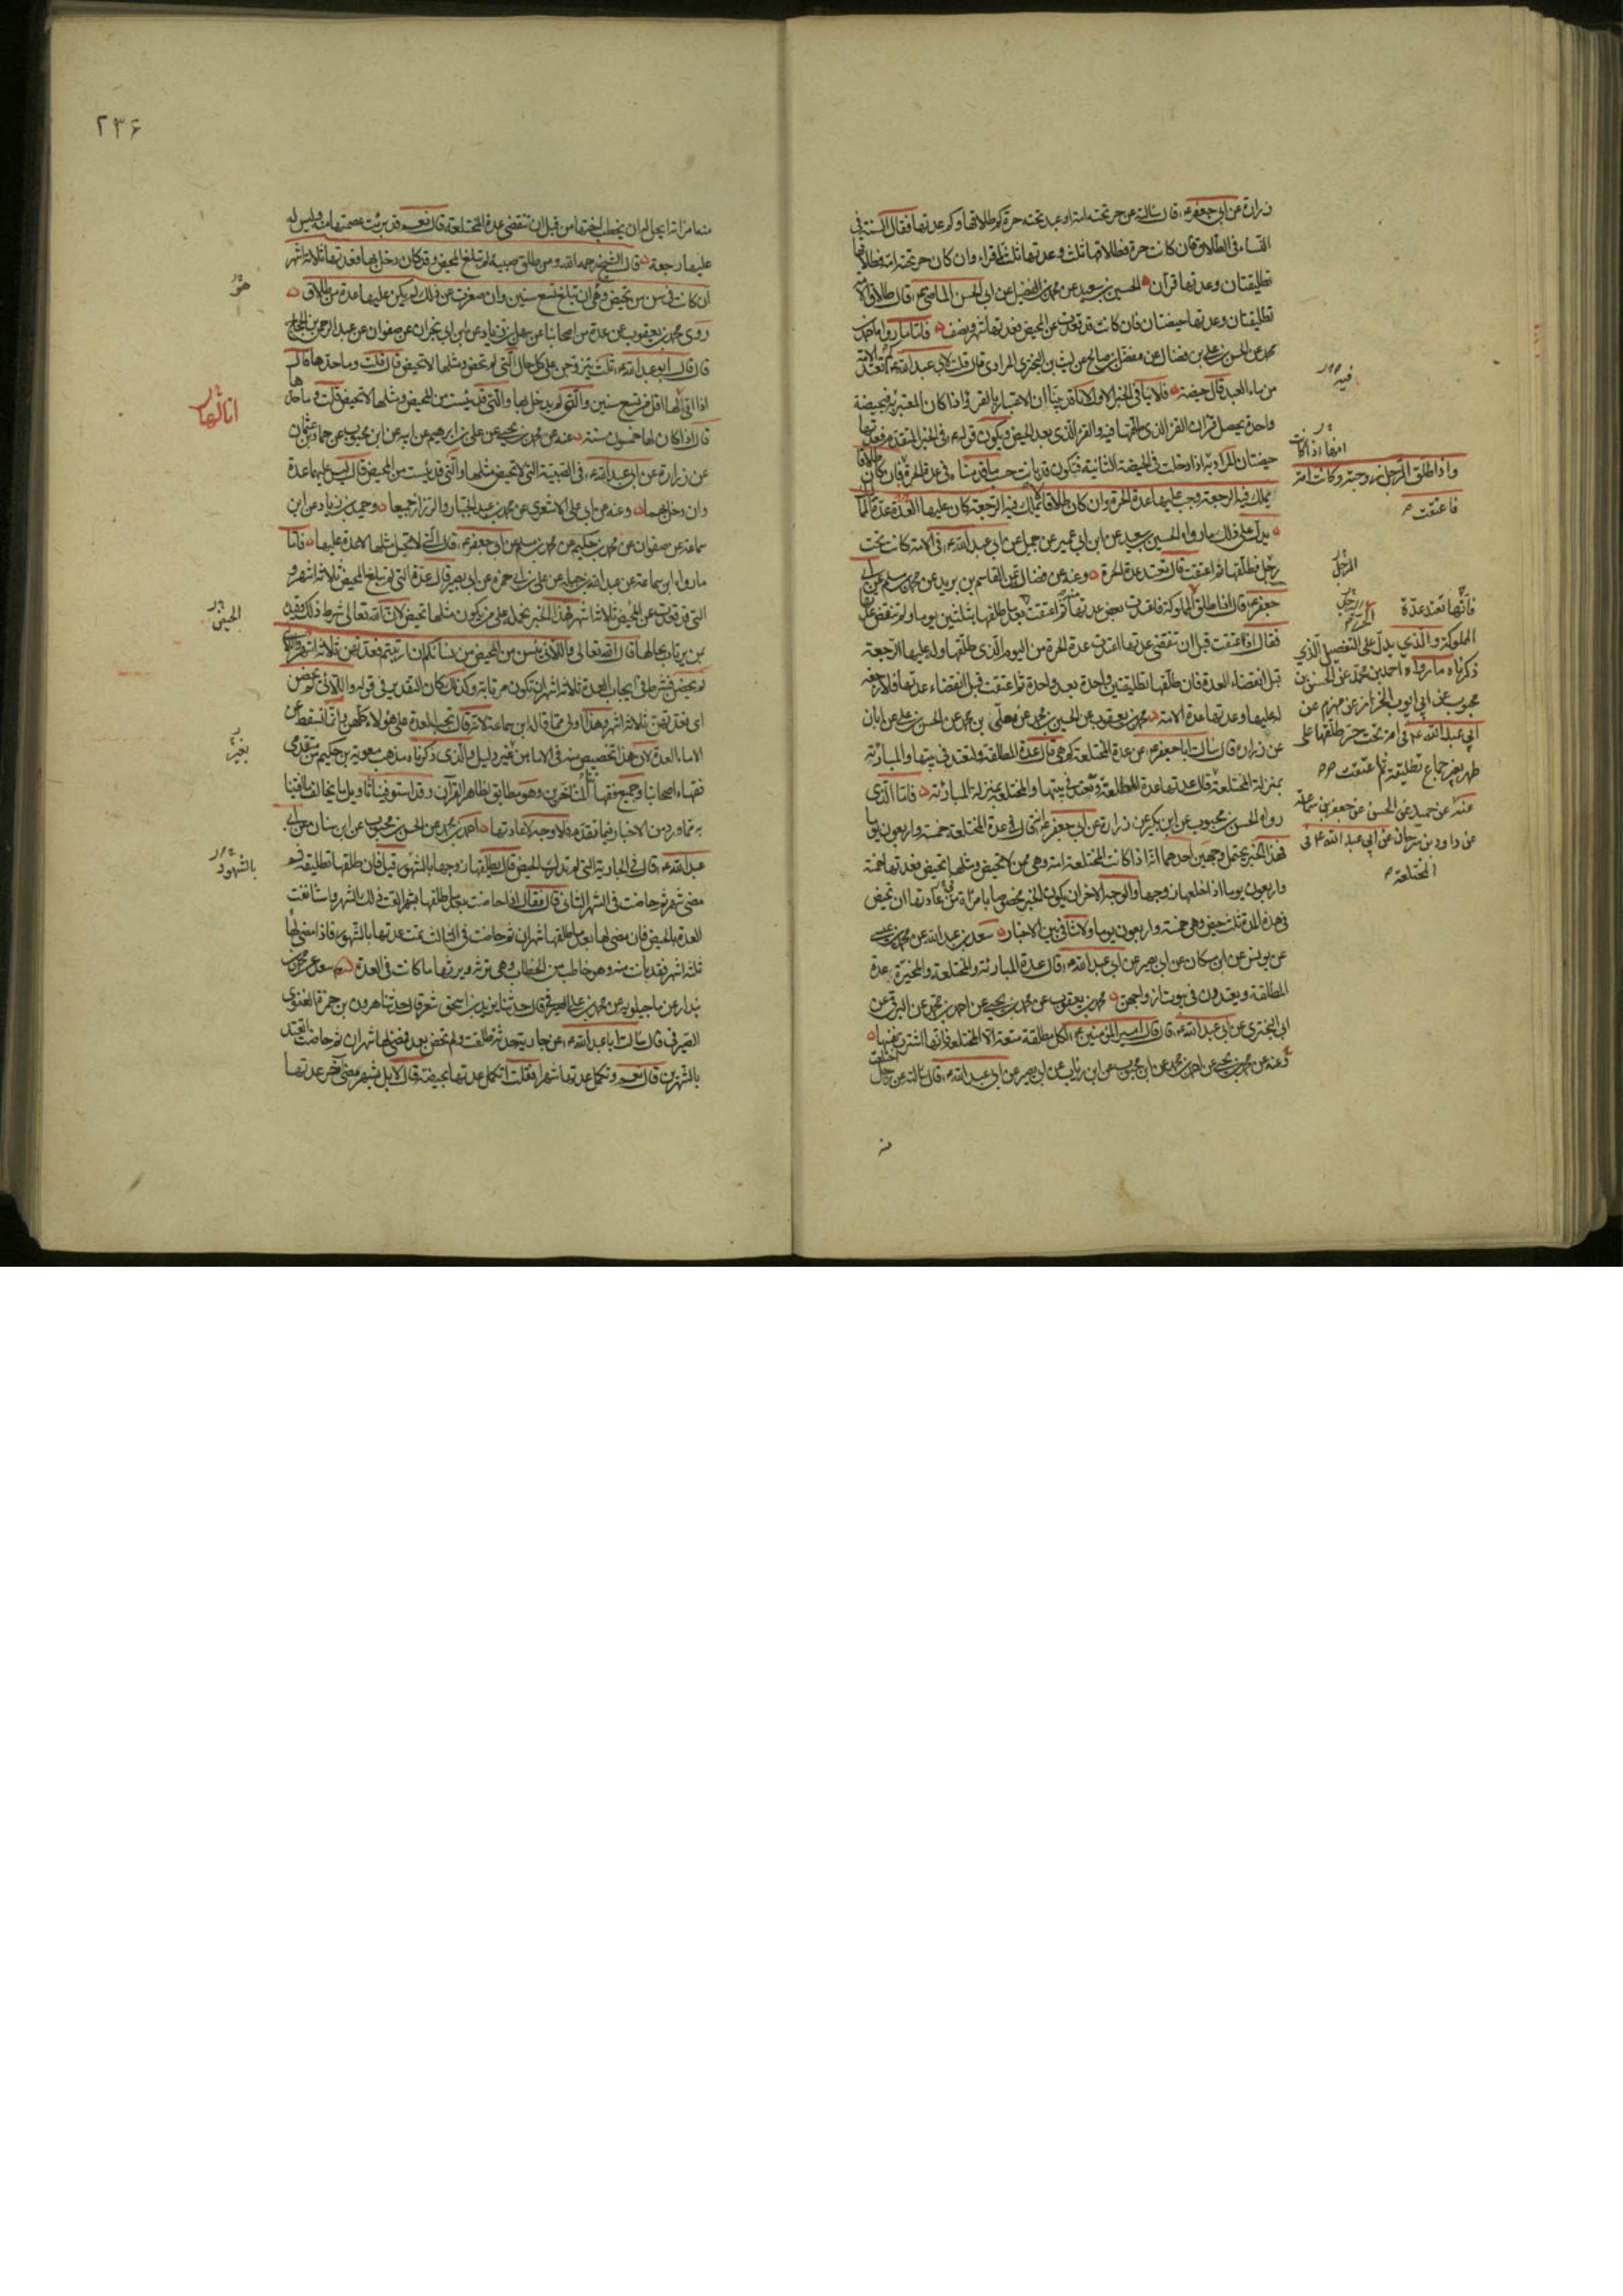 زرارة عن ابي جعفر ع قال سالته عن حر تحته امة او عبد تحته حرة كم طلاقها وكم عدتها فقال السنة في
النساء في الطلاق فان كانت حرة فطلاقها ثلث وعدتها ثلثة اقراء وان كان حر تحته امة فطلاقها
تطليقتان وعدتها قرآن الحسين بن سعيد عن محمد بن الفضيل عن ابي الحسن الماضي ع قال طلاق الامة
تطليقتان وعدتها حيضتان فان كانت قد قعدت عن المحيض فعدتها شهر ونصف فاما ما رواه احمد بن
محمد عن الحسن بن علي بن فضال عن مفضل بن صالح عن ليث بن البختري المرادي قال قلت لابي عبد الله ع كم تعتد الامة
من ماء العبد قال حيضة فلا ينافي الخبر الاول لانا قد بينا ان الاعتبار بالقرء واذا كان المعتبر به فبحيضة
واحدة يحصل قرآن القرء الذي طلقها فيه والقرء الذي بعد الحيض ويكون قوله ع في الخبر المتقدم فعدتها
حيضتان المراد به اذا دخلت في الحيضة الثانية فتكون قد بانت حسب ما قدمناه في عدة الحرة فان كان طلاقا
يملك فيه الرجعة وجب عليها عدة الحرة وان كان طلاقا لا يملك فيه الرجعة كان عليها العدة عدة الاماء
يدل على ذلك ما رواه الحسين بن سعيد عن ابن ابي عمير عن جميل عن ابي عبد الله ع في الامة كانت تحت
رجل فطلقها ثم اعتقت قال تعتد عدة الحرة وعنه عن فضالة عن القاسم بن بريد عن محمد بن مسلم عن ابي
جعفر ع قال اذا طلق المملوكة فاعتدت بعض عدتها ثم اعتقت
فقال اذا اعتقت قبل ان تنقضي عدتها اعتدت عدة الحرة من اليوم الذي طلقها وله عليها الرجعة
قبل انقضاء العدة فان طلقها تطليقتين واحدة بعد واحدة ثم اعتقت قبل انقضاء عدتها فلا رجعة
له عليها وعدتها عدة الامة محمد بن يعقوب عن الحسين بن محمد عن معلى بن محمد عن الحسن بن علي عن ابان
عن زرارة قال سالت ابا جعفر ع عن عدة المختلعة كم هي قال عدة المطلقة ولتعتد في بيتها والمبارئة
بمنزلة المختلعة
رواه الحسن بن محبوب عن ابن بكير عن زرارة عن ابي جعفر ع انه قال في عدة المختلعة خمسة واربعون يوما
فهذا الخبر يحتمل وجهين احدهما انه اذا كانت المختلعة امة وهي ممن لا تحيض ومثلها تحيض فعدتها خمسة
واربعون يوما اذا خلعها زوجها والوجه الاخر ان يكون الخبر مخصوصا بامراة من عادتها ان تحيض
في هذه المدة ثلث حيض وهي خمسة واربعون يوما ولا تنافي بين الاخبار سعد بن عبد الله عن محمد بن عيسى
عن يونس عن ابن مسكان عن ابي بصير عن ابي عبد الله ع قال عدة المبارئة والمختلعة والمخيرة عدة
المطلقة ويعتددن في بيوت ازواجهن محمد بن يعقوب عن محمد بن يحيى عن احمد بن محمد عن البرقي عن
ابي البختري عن ابي عبد الله ع قال قال امير المؤمنين ع لكل مطلقة متعة الا المختلعة فانها اشترت نفسها
وعنه عن محمد بن يحيى عن احمد بن محمد عن ابن محبوب عن ابن رئاب عن ابي بصير عن ابي عبد الله ع قال سالته عن رجل اختلعت
فيه
امها اذا كانت
واذا طلق الرجل زوجته وكانت امة
فاعتقت
الرجل
فانها تعتد عدة
المملوكة والذي يدل على التفصيل الذي
ذكرناه ما رواه احمد بن محمد عن الحسن بن
محبوب عن ابي ايوب الخراز عن مهزم عن
ابي عبد الله ع في امة تحت حر طلقها على
طهر بغير جماع تطليقة ثم اعتقت
عنه عن حميد عن الحسن عن جعفر بن سماعة
عن داود بن سرحان عن ابي عبد الله ع في
المختلعة
٢٣۶
منه امراته ايحل له ان يخطب اختها من قبل ان تنقضي عدة المختلعة قال نعم قد برئت عصمتها منه وليس له
عليها رجعة قال الشيخ رحمه الله ومن طلق صبية لم تبلغ المحيض وقد كان دخل بها فعدتها ثلاثة اشهر
ان كانت في سن من تحيض وهي ان تبلغ تسع سنين وان صغرت عن ذلك لم يكن عليها عدة من طلاق
روى محمد بن يعقوب عن عدة من اصحابنا عن سهل بن زياد عن ابن ابي نجران عن صفوان عن عبد الرحمن بن الحجاج
قال قال ابو عبد الله ع ثلث يتزوجن على كل حال التي لم تحض ومثلها لا تحيض قال قلت وما حدها قال
اذا اتى لها اقل من تسع سنين والتي لم يدخل بها والتي قد يئست من المحيض ومثلها لا تحيض قلت وما حدها
قال اذا كان لها خمسون سنة عنه عن محمد بن يحيى عن علي بن ابرهيم عن ابيه عن ابن محبوب عن حماد بن عثمان
عن زرارة عن ابي عبد الله ع في الصبية التي لا تحيض مثلها والتي قد يئست من المحيض قال ليس عليهما عدة
وان دخل بهما وعنه عن ابي علي الاشعري عن محمد بن عبد الجبار والرزاز جميعا وحميد بن زياد عن ابن
سماعة عن صفوان عن محمد بن حكيم عن محمد بن مسلم عن ابي جعفر ع قال التي لا تحبل مثلها لا عدة عليها فاما
ما رواه ابن سماعة عن عبد الله بن جبلة عن علي بن ابي حمزة عن ابي بصير قال عدة التي لم تبلغ المحيض ثلاثة اشهر و
التي قد قعدت عن المحيض ثلاثة اشهر فهذا الخبر نحمله على من يكون مثلها تحيض لان الله تعالى شرط ذلك وقيده
بمن يرتاب بحالها قال الله تعالى واللائي يئسن من المحيض من نسائكم ان ارتبتم فعدتهن ثلاثة اشهر واللائي
لم يحضن فشرط في ايجاب العدة ثلاثة اشهر ان تكون مرتابة وكذلك كان التقدير في قوله واللائي لم يحضن
اي فعدتهن ثلاثة اشهر وهذا اولى مما قاله ابن سماعة لانه قال تجب العدة على هؤلاء كلهن وانما تسقط عن
الاماء العدة لان هذا تخصيص منه في الاماء من غير دليل والذي ذكرناه مذهب معوية بن حكيم من متقدمي
فقهاء اصحابنا وجميع فقهائنا المتاخرين وهو مطابق لظاهر القرآن وقد استوفينا تاويل ما يخالف ما افتينا
به مما ورد من الاخبار فيما تقدم فلا وجه لاعادتها احمد بن محمد عن الحسن بن محبوب عن ابن سنان عن ابي
عبد الله ع قال في الجارية التي لم تدرك الحيض قال يطلقها زوجها بالشهور قيل فان طلقها تطليقة ثم
مضى شهر ثم حاضت في الشهر الثاني قال فقال اذا حاضت بعد ما طلقها بشهر القت ذلك الشهر واستانفت
العدة بالحيض فان مضى لها بعد ما طلقها شهران ثم حاضت في الثالث تمت عدتها بالشهور فاذا مضى لها
ثلثة اشهر فقد بانت منه وهو خاطب من الخطاب وهي ترثه ويرثها ما كانت في العدة
بندار عن ماجيلويه عن محمد بن علي الصيرفي قال حدثنا يزيد بن اسحق شعر قال حدثنا هرون بن حمزة الغنوي
الصيرفي قال سالت ابا عبد الله ع عن جارية حدثة طلقت ولم تحض بعد فمضى لها شهران ثم حاضت اتعتد
بالشهرين قال نعم وتكمل عدتها شهرا فقلت اتكمل عدتها بحيضة قال لا بل بشهر مضى آخر عدتها
هو
الحيض
بغير
بالشهور